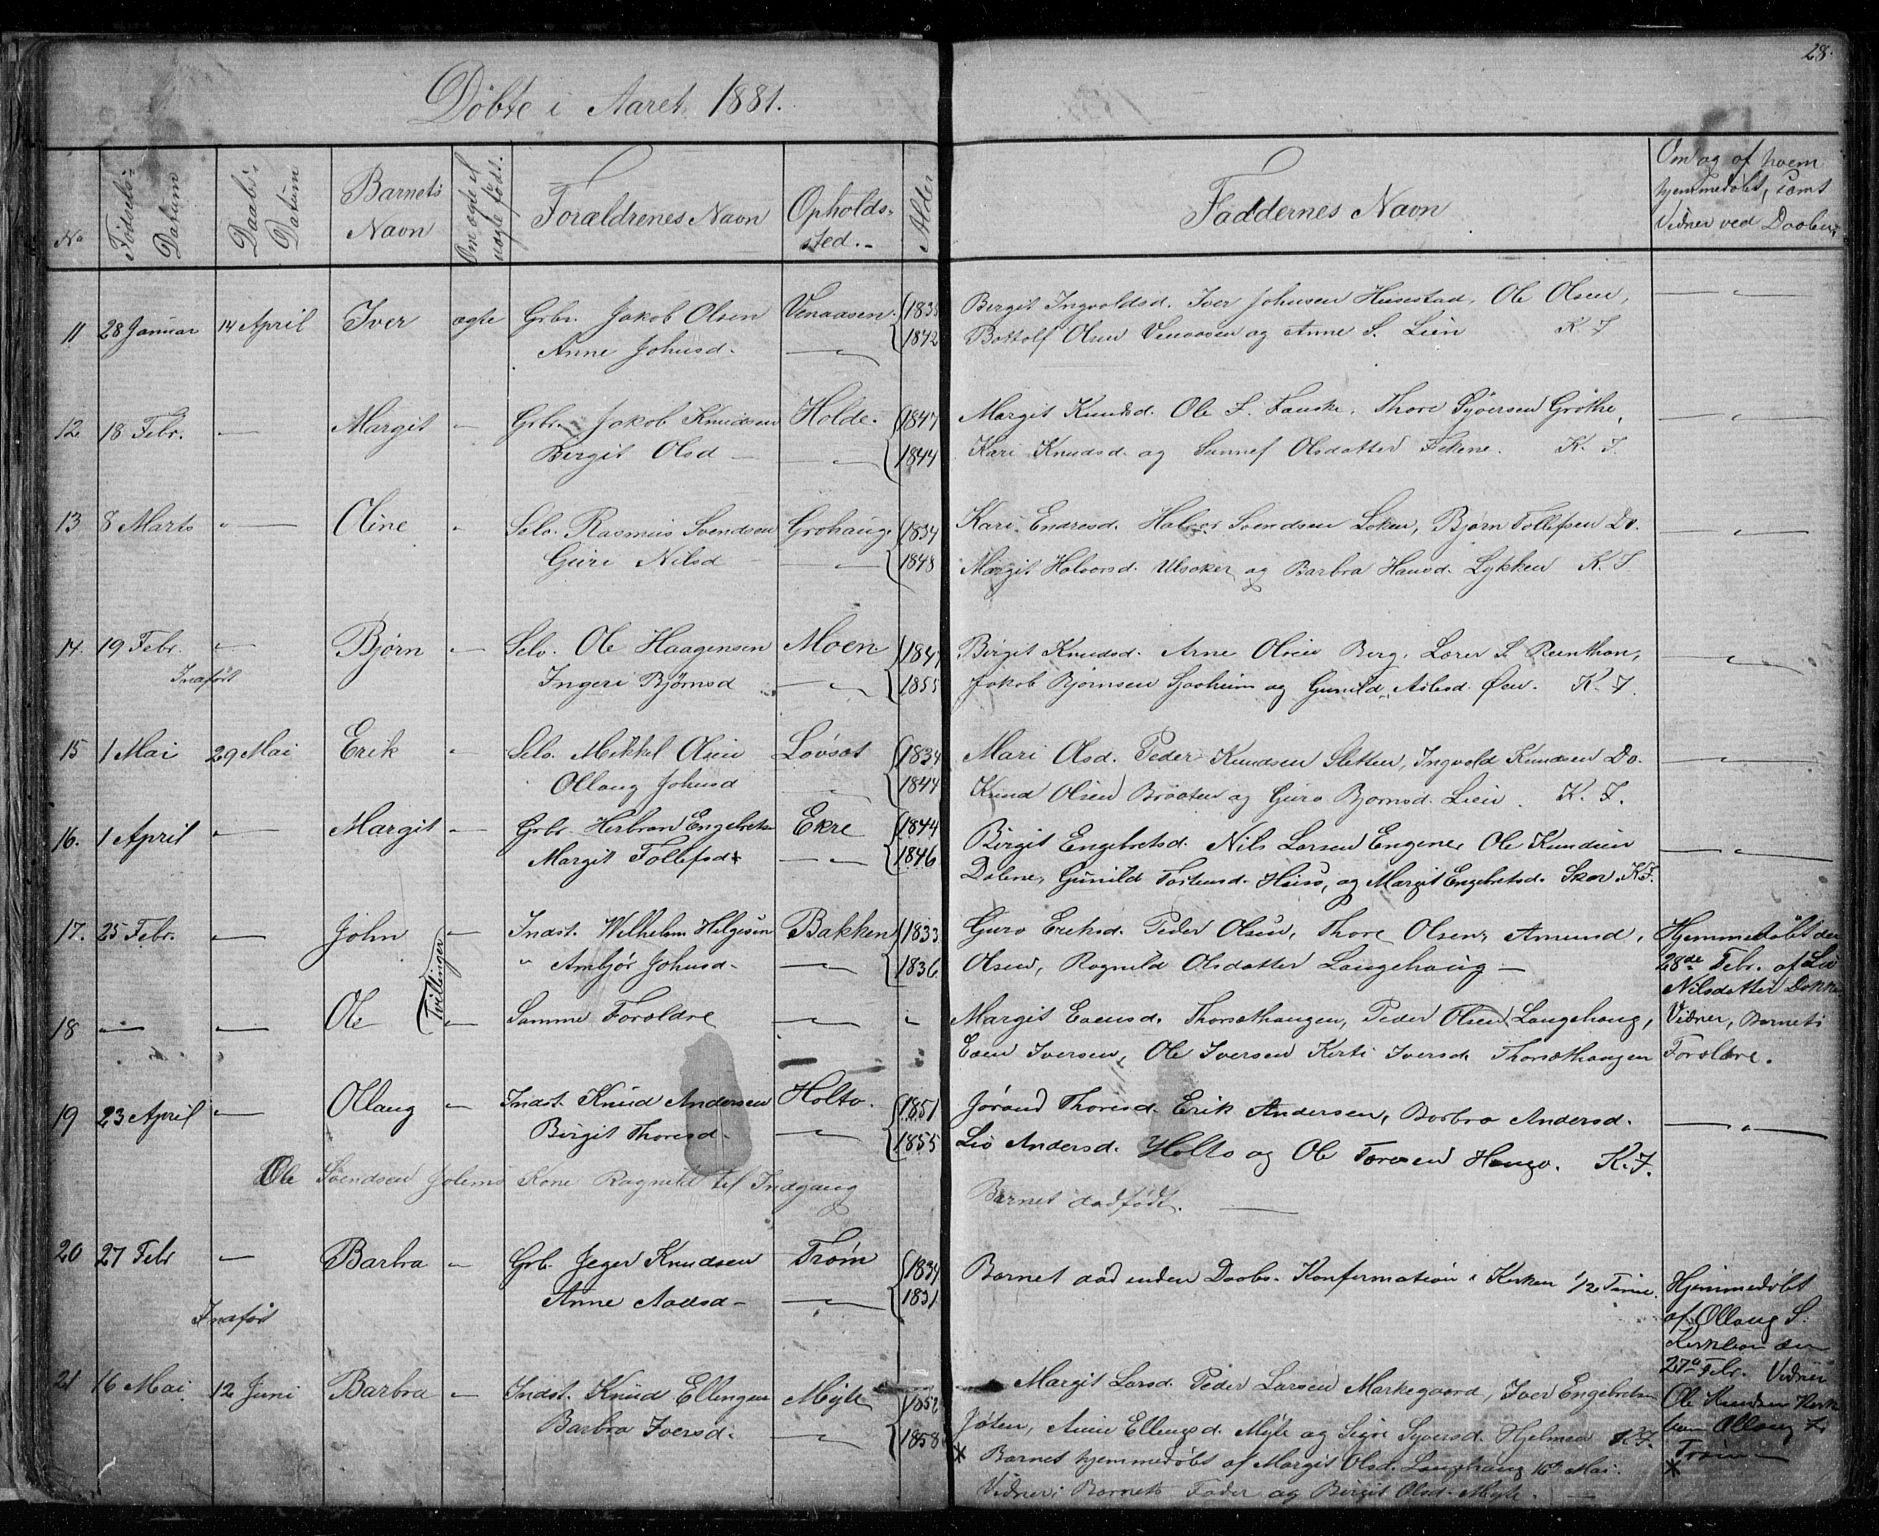 28.
Døbte i Aaret 1881.
No Fødsels-Datum Daabs-Datum Barnets Navn Om ægte el. uægte født. Forældrenes Navn Opholds-sted. Alder
Faddernes Navn
Om og af hvem hjemmedøbt, samt Vidner ved Daaben
11 28 Januar 14 April Iver ægte Grbr. Jakob Olsen Venaasen. 1838
Anne Johnsd. — 1842
Bergit Ingvoldsd. Iver Johnsen Hunstad, Ole Olsen,
Bottolf Olsen Venaasen og Anne S. Lien K. F
12 18 Febr. — Margit — Grbr. Jakob Knudsen Holde. 1847
Bergit Olsd — 1844
Margit Knudsd. Ole S. Fauske, Thore Syversen Grøthe,
Kari Knudsd. og Sunnef Olsdatter Ekene. K. F.
13 8 Marts — Oline — Selv. Rasmus Svendsen Grøhaug. 1834
Guri Nilsd — 1848
Kari Endresd. Halvor Svendsen Løken, Bjørn Tollefsen Do.
Margit Halvorsd. Ulsaker og Barbra Hansd. Lykken K. F
14. 19 Febr. — Bjørn — Selv. Ole Haagensen Moen 1847
Indført Ingeri Bjørnsd — 1855
Birgit Knudsd. Arne Olsen Berg, Lærer S. Reinthon,
Jakob Bjørnsen Sjaaheim og Gunild Aslesd. Øen. K. F.
15 1 Mai 29 Mai Erik — Selv. Mikkel Olsen Løvsæt 1834
Ollaug Johnsd — 1844
Mari Olsd. Peder Knudsen Sletten, Ingvold Knudsen Do.
Knud Olsen Braaten og Guro Bjørnsd. Lien. K. F.
16. 1 April — Margit — Grbr. Herbran Engebretsen Ekre 1844
Margit Tollefsd — 1846
Birgit Engebretsd. Nils Larsen Engene, Ole Knudsen
Dalene, Gunild Torstensd. Huso, og Margit Engebretsd. Skar. K. F.
17. 25 Febr. — John Tvillinger — Indst. Wilhelm Helgesen Bakken 1833
" Ambjør Johnsd. — 1836
Guro Eriksd. Peder Olsen, Thore Olsen, Amund
Olsen, Ragnild Olsdatter Langehaug —
Hjemmedøbt den
28de Febr. af Liv
Nilsdatter Dokken
18 — — Ole — Samme Forældre — "
Margit Evensd. Thorsæthaugen, Peder Olsen Langehaug,
Even Iversen, Ole Iversen Kirsti Iversd. Thorsæthaugen
Vidner, Barnets
Forældre.
19 23 April — Ollaug — Indst. Knud Andersen Holto. 1851
Birgit Thoresd. — 1855
Jørand Thoresd. Erik Andersen, Barbra Andersd.
Liv Andersd. Holto og Ole Toresen Haugo. K. F.
Ole Svendsen Kone Ragnild til Indgang
Barnet dødfødt. —
20 27 Febr — Barbra — Grb. Jeger Knudsen Trøim 1834
Indført Anne Aadsd — 1831
Barnet død inden Daabs-Konfirmation i Kirken 1/2 Time.
Hjemmedøbt
af Ollaug S.
Kirkebøen den
27de Febr. Vidner
Ole Knudsen
Ollaug
Trøim —
21 16 Mai. 12 Juni Barbra — Indst. Knud Ellingsen Mykle 1852
Barbra Iversd. — 1858
Margit Larsd. Peder Larsen Markegaard, Iver Engebretsen
Jøten, Anne Ellingsd. Mykle og Sigri Syversd. Hjelmen K. F.
* Barnet hjemmedøbt af Margit Olsd. Langehaug 16de Mai.
Vidner: Barnets Fader og Birgit Olsd. Mykle. —
*